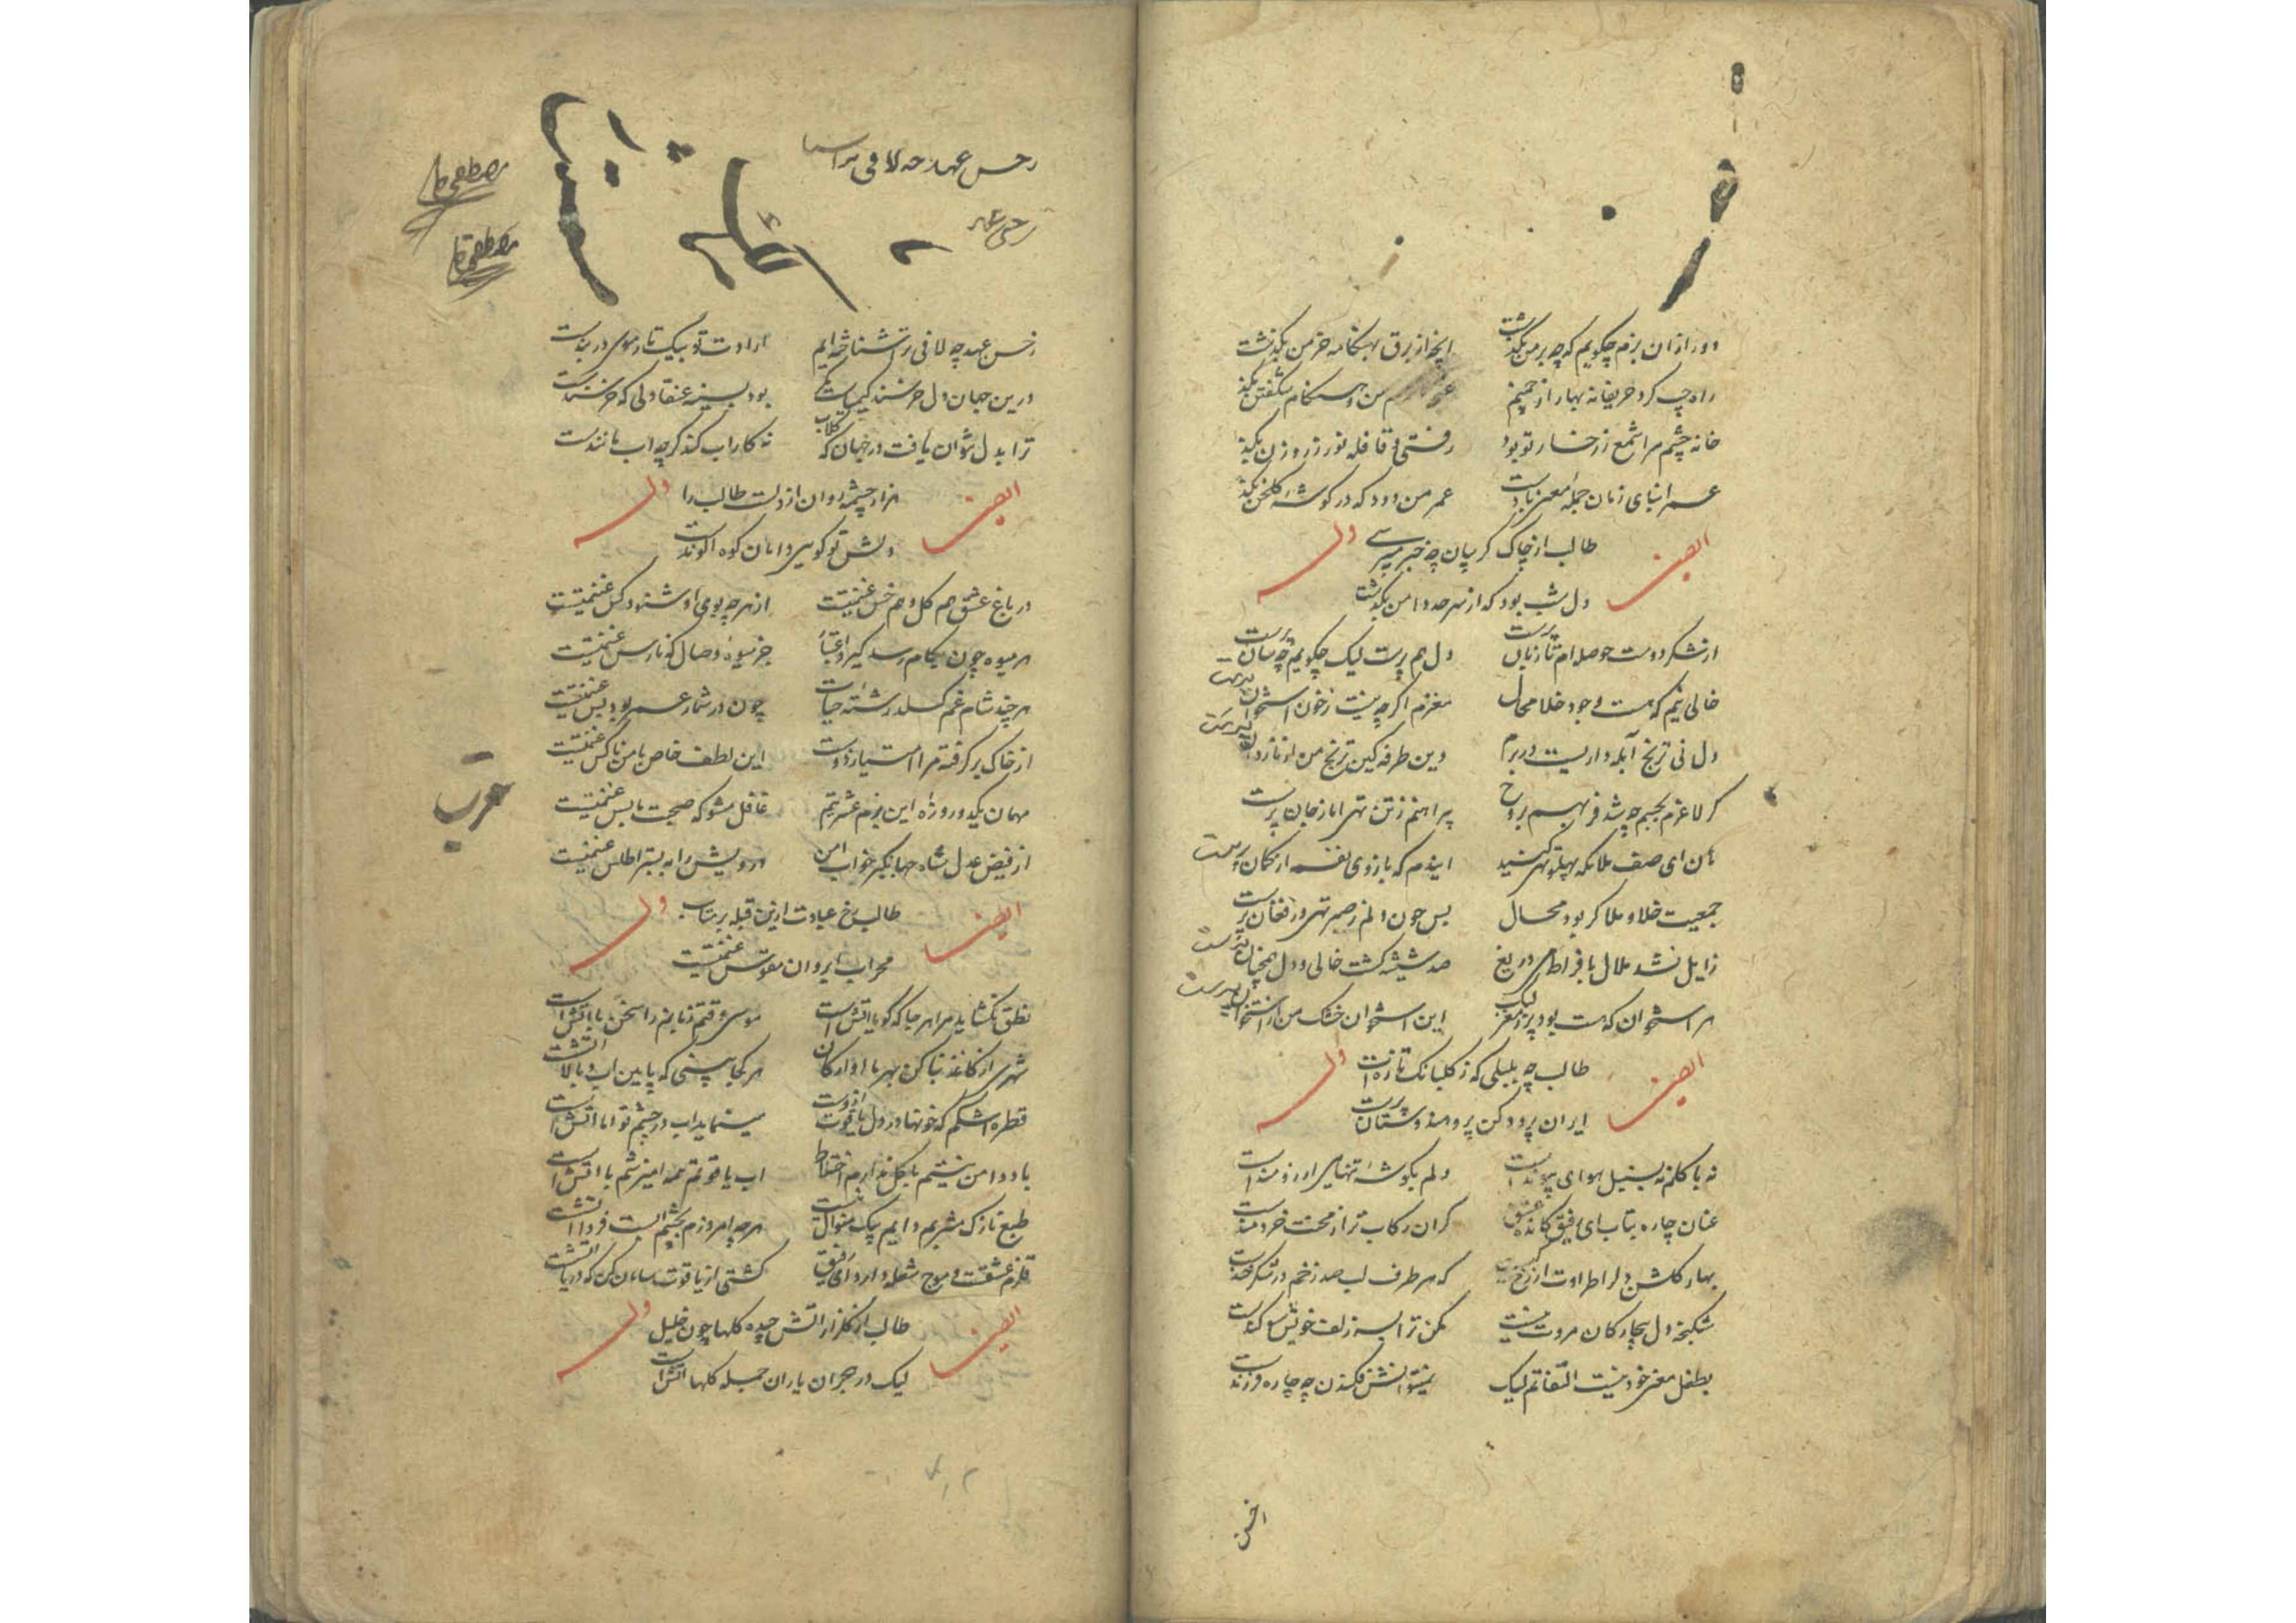 دور ازان بزم چکویم که چه بر من بکذشت انچه از برق بهنکامه خرمن بکذشت
راه چپ کرد حریفانه بهار از چمنم من و هنکام شکفتن بکذشت
خانه چشم مرا شمع ز رخسار تو بود رفتی و قافله نور ز روزن بکذشت
عمر ابنای زمان جمله بعبرت عمر من دود که در کوشه کلخن بکذشت
ایضا طالب از چاک کریبان چه خبر میپرسی وله
دل شب بود که از سرحد دامن بکذشت
از شکر دوست حوصله ام تا زبان پرست دل هم پرست لیک چکویم چه سان پرست
خالی نیم که هست وجود خلا محال مغزم اکر چه نیست ز خون استخوان پرست
دل نی ترنج آبله داریست در برم وین طرفه کین ترنج من از نازدان پرست
کر لاغرم بجسم چه شد فربهم بروح پیراهنم ز تن تهی اما ز جان پرست
هان ای صف ملائکه پهلو تهی کنید ایندم که بازوی نفسم از کمان پرست
جمعیت خلا و ملا کر بود محال پس چون دلم ز صبر تهی وز فغان پرست
زایل نشد ملال بافراط می دریغ صد شیشه کشت خالی و دل همچنان پرست
هر استخوان که هست بود پر ز مغز لیک این استخوان خشک من از استخوان پرست
ایضا طالب چه بلبلی که ز کلبانک تازه ات وله
ایران پر و دکن پر و هندوستان پرست
نه با کلم نه بسنبل هوای پیوند است دلم بکوشه تنهایی ارزومند است
عنان چاره بتاب ای رفیق کانده عشق کران رکاب تر از محنت خردمند است
بهار کلشن دلرا طراوت از زخم که هر طرف لب صد زخم در شکر خند است
شکنجه دل بیچارکان مروت نیست مکن ترا بسر زلف خویش سوکند است
بطفل مغز خود نیست التفاتم لیک نمیتوانش فکندن چه چاره فرزند است
ز حسن عهد چه لافی ترا
ز حسن عهد
مصطفی
مصطفی
ز حسن عهد چه لافی ترا شناخته ایم ارادت تو بیک تار موی در بند است
درین جهان دل خرسند کیمیاست بود بسینه عنقا دلی که خرسند است
ترا بدل نتوان یافت در جهان که کلاب نه کار اب کند کرچه اب مانند است
ایضا هزار چشمه روان از دلست طالب را وله
دلش تو کویی دامان کوه الوند است
در باغ عشق هم کل و هم خس غنیمتست از هر چه بوی او شنود کس غنیمتست
هر میوه چون بکام رسد کیرد اعتبار جز میوه وصال که نارس غنیمتست
هر چند شام غم کسلد رشته حیات چون در شمار عمر بود بس غنیمتست
از خاک بر کرفته مرا امتیاز دوست این لطف خاص با من ناکس غنیمتست
مهمان یکدو روزه این بزم عشرتیم غافل مشو که صحبت ما بس غنیمتست
از فیض عدل شاه جهانکیر خواب امن درویش را به بستر اطلس غنیمتست
ایضا طالب رخ عبادت ازین قبله بر متاب وله
محراب ابروان مقوس غنیمتست
نطق نکشاید مرا هر جا که کویا اتش است موسی وقتم زبانم را سخن با اتش است
شهری از کاغذ بنا کن بهر ما اوارکان هر کجا بینی که پایین اب و بالا اتش است
قطره اشکم که خونها در دل یاقوت ازوست مینماید اب در چشم تو اما اتش است
باد دامن نیستم با کل ندارم اختلاط اب یاقوتم همه امیزشم با اتش است
طبع نازک مشربم دایم بیک منوال نیست هر چه امروزم بچشم ابست فردا اتش است
قلزم عشقست و موج شعله دارد ای رفیق کشتی از یاقوت سامان کن که دریا اتش است
ایضا طالب از کلزار اتش چیده کلها چون خلیل وله
لیک در هجران یاران جمله کلها اتش است